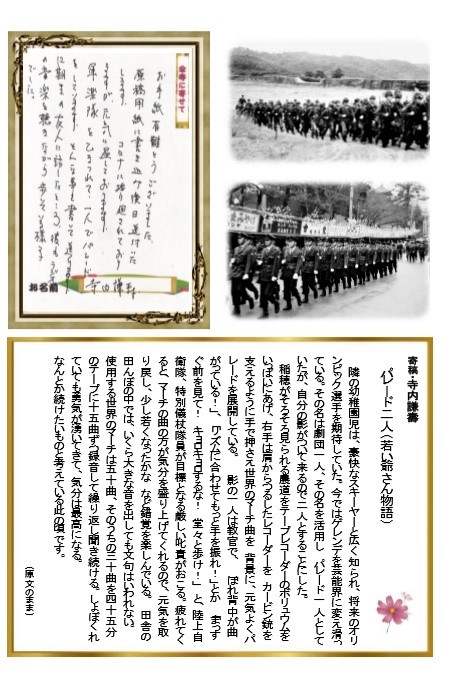 お手紙有難とうございました。
原稿用紙に書き込み後日送付いた
します。
コロナに振り廻されており
ますが、元気に過しております
軍楽隊をひきつれて、一人でパレード
をしています。そんな事を書いて送ります
二期生の友人に話したところ、彼も
の音楽を聴きながら歩いている様
でした。
お名前 寺内謙寿
寄稿・寺内謙壽
パレード二人(若い爺さん物語)
隣の幼稚園児は、豪快なスキーヤーと広く知られ、将来のオリ
ンピック選手を期待していた。今ではゲレンデを芸能界に変え滑っ
ている。その名は劇団一人、その名を活用し パレード一人として
いたが、自分の影がついて来るので二人とすることにした。
稲穂がそろそろ見られる農道をテープレコーダーのボリュウムを
いっぱいにあげ、右手は肩からつるしたレコーダーを カービン銃を
支えるように手で押さえ世界のマーチ曲を 背景に、元気よくパ
レードを展開している。 影の一人は教官で、「ほれ背中が曲
がっている!」、「リズムに合わせてもっと手を振れ!」とか「まっす
ぐ前を見て! キョロキョロするな! 堂々と歩け!」と、陸上自
衛隊、特別儀仗隊員が目標となる厳しい叱責がおこる。疲れてく
ると、マーチの曲の方が気分を盛り上げてくれるので、元気を取
り戻し、少し若くなったかな など錯覚を楽しんでいる。 田舎の
田んぼの中では、いくら大きな音を出しても文句はいわれない。
使用する世界のマーチは五十曲、そのうちの三十曲を四十五分
のテープに十五曲ずつ録音して繰り返し聞き続ける。しょぼくれ
ていても勇気が湧いてきて、気分は最高になる。
なんとか続けたいものと考えている此の頃です。
(原文のまま)